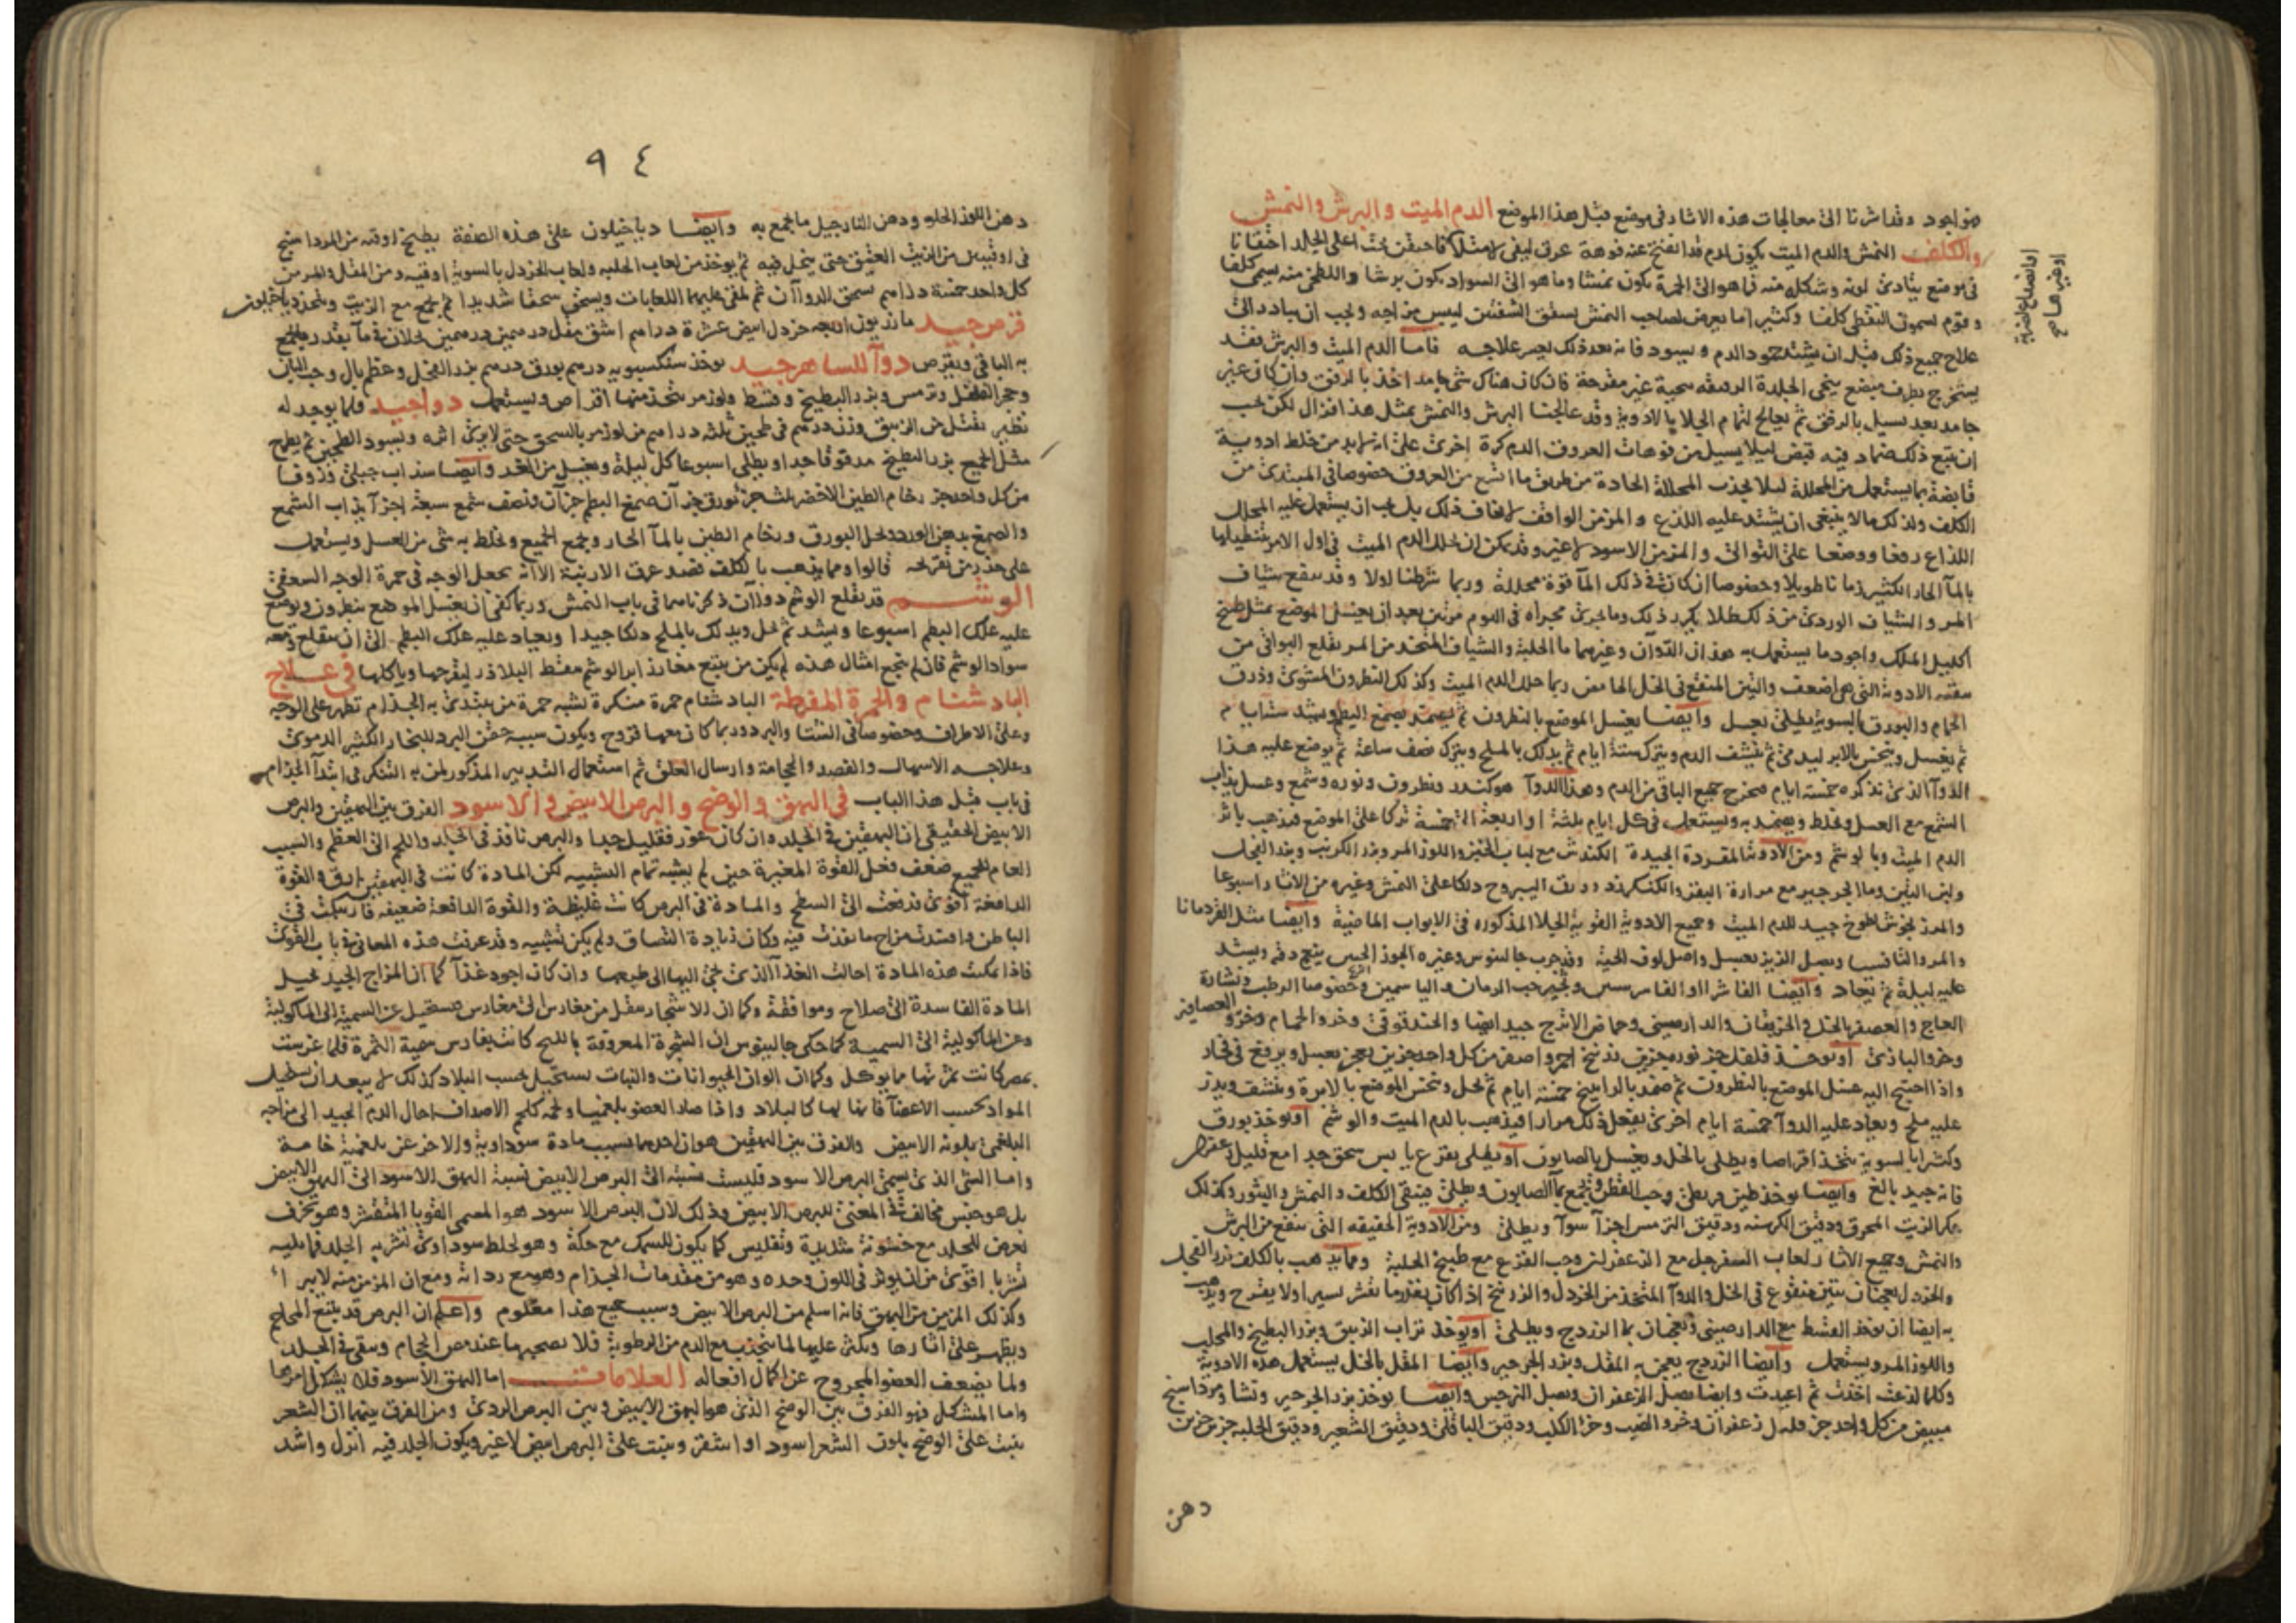 فهو اجود وقد اشرنا الى معالجات هذه الاثار في موضع قبل هذا الموضع الدم الميت والبرش والنمش
والكلف النمش والدم الميت يكون لدم قد انفتح عنه فوهة عرق ليفي فاحتقن تحت اعلى الجلد احتقانا
في موضع يتادى لونه وشكله منه فما هو الى الحمرة يكون نمشا وما هو الى السواد يكون برشا واللطخي منه يسمى كلفا
وقوم يسمون النقطي كلفا وكثيرا ما يعرض لصاحب النمش تشقق الشفتين ليبس مزاجه ويجب ان يبادر الى
علاج جميع ذلك قبل ان يشتد جمود الدم ويسود فانه بعد ذلك يعسر علاجه فاما الدم الميت والبرش فقد
يستخرج بطرف مبضع ينحى الجلدة الرقيقه سحية غير مقرحة فان كان هناك شي جامد اخذ بالرفق وان كان غير
جامد بعد يسيل بالرفق ثم يعالج لتمام الجلا بالادوية وقد عالجنا البرش والنمش بمثل هذا فزال لكن يجب
ان يتبع ذلك ضماد فيه قبض ليلا يسيل من فوهات العروق الدم كرة اخرى على انه لا بد من خلط ادوية
قابضة بما يستعمل من المحللة ليلا يجذب المحللة الحادة من طريق ما اتسع من العروق خصوصا في المبتدى من
الكلف ولذلك ما لا ينبغي ان يشتد عليه اللذع والمزمن الواقف لا يخاف ذلك بل يجب ان يستعمل عليه المحلل
اللذاع دفعا ووضعا على التوالى والمزمن الاسود لا غير وقد يمكن ان يحلل الدم الميت في اول الامر
بالمآ الحار الكثير زمانا طويلا وخصوصا ان كان في ذلك المآ قوة محللة وربما شرطنا اولا وقد ينفع شياف
المر والشياف الوردى من ذلك طلا يكرر ذلك وما يجرى مجراه في اليوم مرتين بعد ان يغسل الموضع بمثل طبيخ
اكليل الملك واجود ما يستعمل به هذان الدوآن وغيرهما ما الحلبة والشياف المتخذ من المر يقلع البواقي من
الادوية التي هي اضعف والتين المنقع في الخل الحامض ربما حلل الدم الميت وكذلك النطرون المشوى وذرق
الحمام والبورق بالسوية يطلى بعسل وايضا يغسل الموضع بالنطرون ثم يضمد بصمغ البطم ويشد ستة ايام
ثم يغسل وينخس بالابر ليدمى ثم ينشف الدم ويترك ستة ايام ثم يدلك بالملح ويترك نصف ساعة ثم يوضع عليه هذا
الدوآ الذى نذكره خمسة ايام فيخرج جميع الباقي من الدم وهذا الدوآ هو كندر ونطرون ونوره وشمع وعسل يذاب
الشمع مع العسل ويخلط ويضمد به ويستعمل في كل ايام ثلثة او اربعة الى خمسة تركا على الموضع فيذهب باثر
الدم الميت وبالوشم ومن الادوية المفردة الجيدة الكندش مع لباب الخبز واللوز المر وبزر الكرنب وبذر الفجل
ولبن التين وما الجرجير مع مرارة البقر والكنكرزد وورق اليبروح دلكا على النمش وغيره من الاثار اسبوعا
والمرزنجوش طوخ جيد للدم الميت وجميع الادوية القوية الجلا المذكوره في الابواب الماضية وايضا مثل القردمانا
والمر والثافسيا وبصل الزيز بعسل واصل لوف الحية وقد جرب جالينوس وغيره الجوز الجبس ينعم دقه ويشد
عليه ليلة ثم يعاد وايضا الفاشرا او الفاشرستين وشجر حب الرمان والياسمين وخصوصا الرطب ونشارة
العاج والعصفر بالخل والخربقان والدارصيني وحماض الاترج جيد ايضا والحندقوقى وخرو الحمام وخرو العصافير
وخرو البازى او يوخذ فلفل جز نوره جزين زرنيخ احمر واصفر من كل واحد جزين يعجن بعسل ويرفع في فخار
واذا احتيج اليه غسل الموضع بالنطرون ثم ضمد بالراتينج خمسة ايام ثم يحل وينخس الموضع بالابرة وينشف ويذر
عليه ملح ويعاد عليه الدوآ خمسة ايام اخرى يفعل ذلك مرارا فيذهب بالدم الميت والوشم او يوخذ بورق
وكثيرا بالسوية يتخذ اقراصا ويطلى بالخل ويغسل بالصابون او يطلى بقرع يابس سحق جدا مع قليل زعفران
فانه جيد بالغ وايضا يوخذ طين وحب القطن ويجمع بمآ الصابون ويطلى فينقى الكلف والنمش والبثور وكذلك
عكر الزيت المحرق ودقيق الكرسنه ودقيق الترمس اجزآ سوآ ويطلى ومن الادوية الخفيفه التي تنفع من البرش
والنمش وجميع الاثار لعاب السفرجل مع الزعفران وحب القرع مع طبيخ الحلبة ومما يذهب بالكلف بزر الفجل
والخردل يعجنان بتين منقوع في الخل والدوآ المتخذ من الخردل والزرنيخ اذا كان بقدر ما يقشر يسيرا ولا يقرح ويذهب
به ايضا ان يوخذ القسط مع الدارصيني ويعجنان بما الزردج ويطلى او يوخذ تراب الزيبق وبزر البطيخ والمحلب
واللوز المر ويستعمل وايضا الزردج يعجن به المقل وبزر الجرجير وايضا المقل بالخل يستعمل هذه الادوية
وكلما لذعت اخذت ثم اعيدت وايضا بصل الزعفران وبصل النرجس وايضا يوخذ بزر الجرجير ونشا ومرداسنج
مبيض من كل واحد جز زعفران وخرو الضب وخر الكلب ودقيق الباقلى ودقيق الشعير ودقيق الحلبة جزين جزين
دهن
٩٤
دهن اللوز الحلو ودهن النارجيل ما يجمع به وايضا دياخيلون على هذه الصفة يطبخ اوقيه من المرداسنج
في اوقيتين من الزيت العتيق حتى ينحل فيه ثم يوخذ من لعاب الحلبه ولعاب الخردل بالسوية اوقيه ومن المقل والمر من
كل واحد خمسة دراهم يسحق الدوآن ثم يلقى عليهما اللعابات ويسحق سحقا شديدا ثم يجمع مع الزيت ويتخذ دياخيلون
قرص جيد مازريون اوقيه خردل ابيض عشرة دراهم اشق مقل درهمين درهمين يحلان في مآ بقدر ما يجمع
به الباقي ويقرص دوآ للساهر جيد يوخذ سكسبويه درهم بورق درهم بزر الفجل وعظم بال وحب البان
وحجر الفلفل وترمس وبزر البطيخ وقسط ولوز مر يتخذ منها اقراص ويستعمل دوا جيد قلما يوجد له
نظير يقتل من الزيبق وزن درهم في طحين ثلثه دراهم من لوز مر بالسحق حتى لا يرى اثره ويسود الطحين ثم يطرح
مثل الجميع بزر البطيخ مدقوقا جدا ويطلى اسبوعا كل ليلة ويغسل من الغد وايضا سذاب جبلى وزوفا
من كل واحد جز رخام الطين الاخضر ثلث جز بورق جزآن صمغ البطم جزآن ونصف شمع سبعة اجزآ يذاب الشمع
والصمغ بدهن الورد ويحل البورق ورخام الطين بالمآ الحار ويجمع الجميع ويخلط به شي من العسل ويستعمل
على حذر من تقريحه قالوا ومما يذهب بالكلف فصد عرق الارنبة الا انه يجعل الوجه في حمرة الوجه السعفي
الوشم قد يقلع الوشم دوآن ذكرناهما في باب النمش وربما كفى ان يغسل الموضع بنطرون ويوضع
عليه علك البطم اسبوعا ويشد ثم يحل ويدلك بالملح دلكا جيدا ويعاد عليه علك البطم الى ان ينقلع ومعه
سواد الوشم فان لم ينجع امثال هذه لم يكن من تتبع مغارز ابر الوشم بنقط البلاذر ليقرحها وياكلها في علاج
البادشنام والحمرة المفرطة البادشنام حمرة منكرة تشبه حمرة من يبتدى به الجذام تظهر على الوجه
وعلى الاطراف وخصوصا في الشتا والبرد وربما كان معها قروح ويكون سببه حقن البرد للبخار الكثير الدموى
وعلاجه الاسهال والفصد والحجامة وارسال العلق ثم استعمال التدبير المذكور لمن به التنكر في ابتدآ الجذام
في باب قبل هذا الباب في البهق والوضح والبرص الابيض والاسود الفرق بين البهقين والبرص
الابيض الحقيقي ان البهقين في الجلد وان كان غور فقليل جدا والبرص نافذ في الجلد واللحم الى العظم والسبب
العام للجميع ضعف فعل القوة المغيرة حين لم يشبه تمام التشبيه لكن المادة كانت في البهقين ارق والقوة
الدافعة اقوى فدفعت الى السطح والمادة في البرص كانت غليظة والقوة الدافعة ضعيفه فارتبكت في
الباطن وافسدت مزاج ما نفذت فيه وكان زيادة التصاق ولم يكن تشبيه وقد عرفت هذه المعاني في باب القوى
فاذا تمكنت هذه المادة احالت الغذآ الذى يجي اليها الى طبعها وان كان اجود غذآ كما ان المزاج الجيد يحيل
المادة الفاسدة الى صلاح وموافقة وكما ان الاشجار ينقل من مغارس الى مغارس فيستحيل عن السمية الى الماكولية
وعن الماكولية الى السمية كما حكى جالينوس ان الشجرة المعروفة باللبخ كانت بفارس سمية الثمرة فلما غرست
بمصر كانت ثمرتها مما يوكل وكما ان الوان الحيوانات والنبات يستحيل بحسب البلاد كذلك لا يبعد ان يستحيل
المواد بحسب الاعضآ فانها لها كالبلاد واذا صار العضو بلغميا ولحمه كلحم الاصداف احال الدم الجيد الى مزاجه
البلغمى ولونه الابيض والفرق بين البهقين هو ان احدهما بسبب مادة سوداوية والاخر عن بلغمية خامة
واما الشي الذى يسمى البرص الاسود فليست نسبته الى البرص الابيض نسبة البهق الاسود الى البهق الابيض
بل هو جنس مخالف في المعنى للبرص الابيض وذلك لان البرص الاسود هو المسمى القوبا المتقشر وهو تخزف
يعرض للجلد مع خشونة شديدة وتفليس كما يكون للسمك مع حكة وهو لخلط سوداوى تشربه الجلد فما يليه
تشربا اقوى من ان يوثر في اللون وحده وهو من مقدمات الجذام وهو مع ردآته ومع ان المزمن منه لا يبرا
وكذلك المزمن من البهق فانه اسلم من البرص الابيض وسبب جميع هذا معلوم واعلم ان البرص قد يتبع المحاجم
ويظهر على اثارها ويكثر عليها لما ينجذب مع الدم من الرطوبة فلا يصحبها عند مص الحجام ويبقى في الجلد
ولما يضعف العضو المجروح عن كمال افعاله العلامات اما البهق الاسود فلا يشكل امره
واما المشكل فهو الفرق بين الوضح الذى هو البهق الابيض وبين البرص الردى ومن الفرق بينهما ان الشعر
ينبت على الوضح بلون الشعر اسود او اشقر وينبت على البرص ابيض لا غير ويكون الجلد فيه انزل واشد